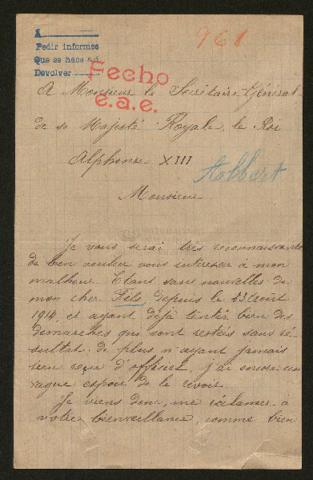 A
Pedir informes
Que se hace
Devolver
Fecho
e.a.e.
961
A Monsieur le Secrétaire Général
de sa Majesté Royale le Roi
Alphonse XIII
Monsieur
Je vous serai très reconnaissante
de bien vouloir vous intéresser à mon
malheur. Etant sans nouvelles de
mon cher Fils depuis le 23 Août
1914, et ayant déjà tenté bien des
demarches qui sont restés sans ré-
sultat. de plus n'ayant jamais
rien reçue d'officiel, j'ai encore un
vague espoir de le revoir.
Je viens donc, me réclamer a
votre bienveillance, comme bien